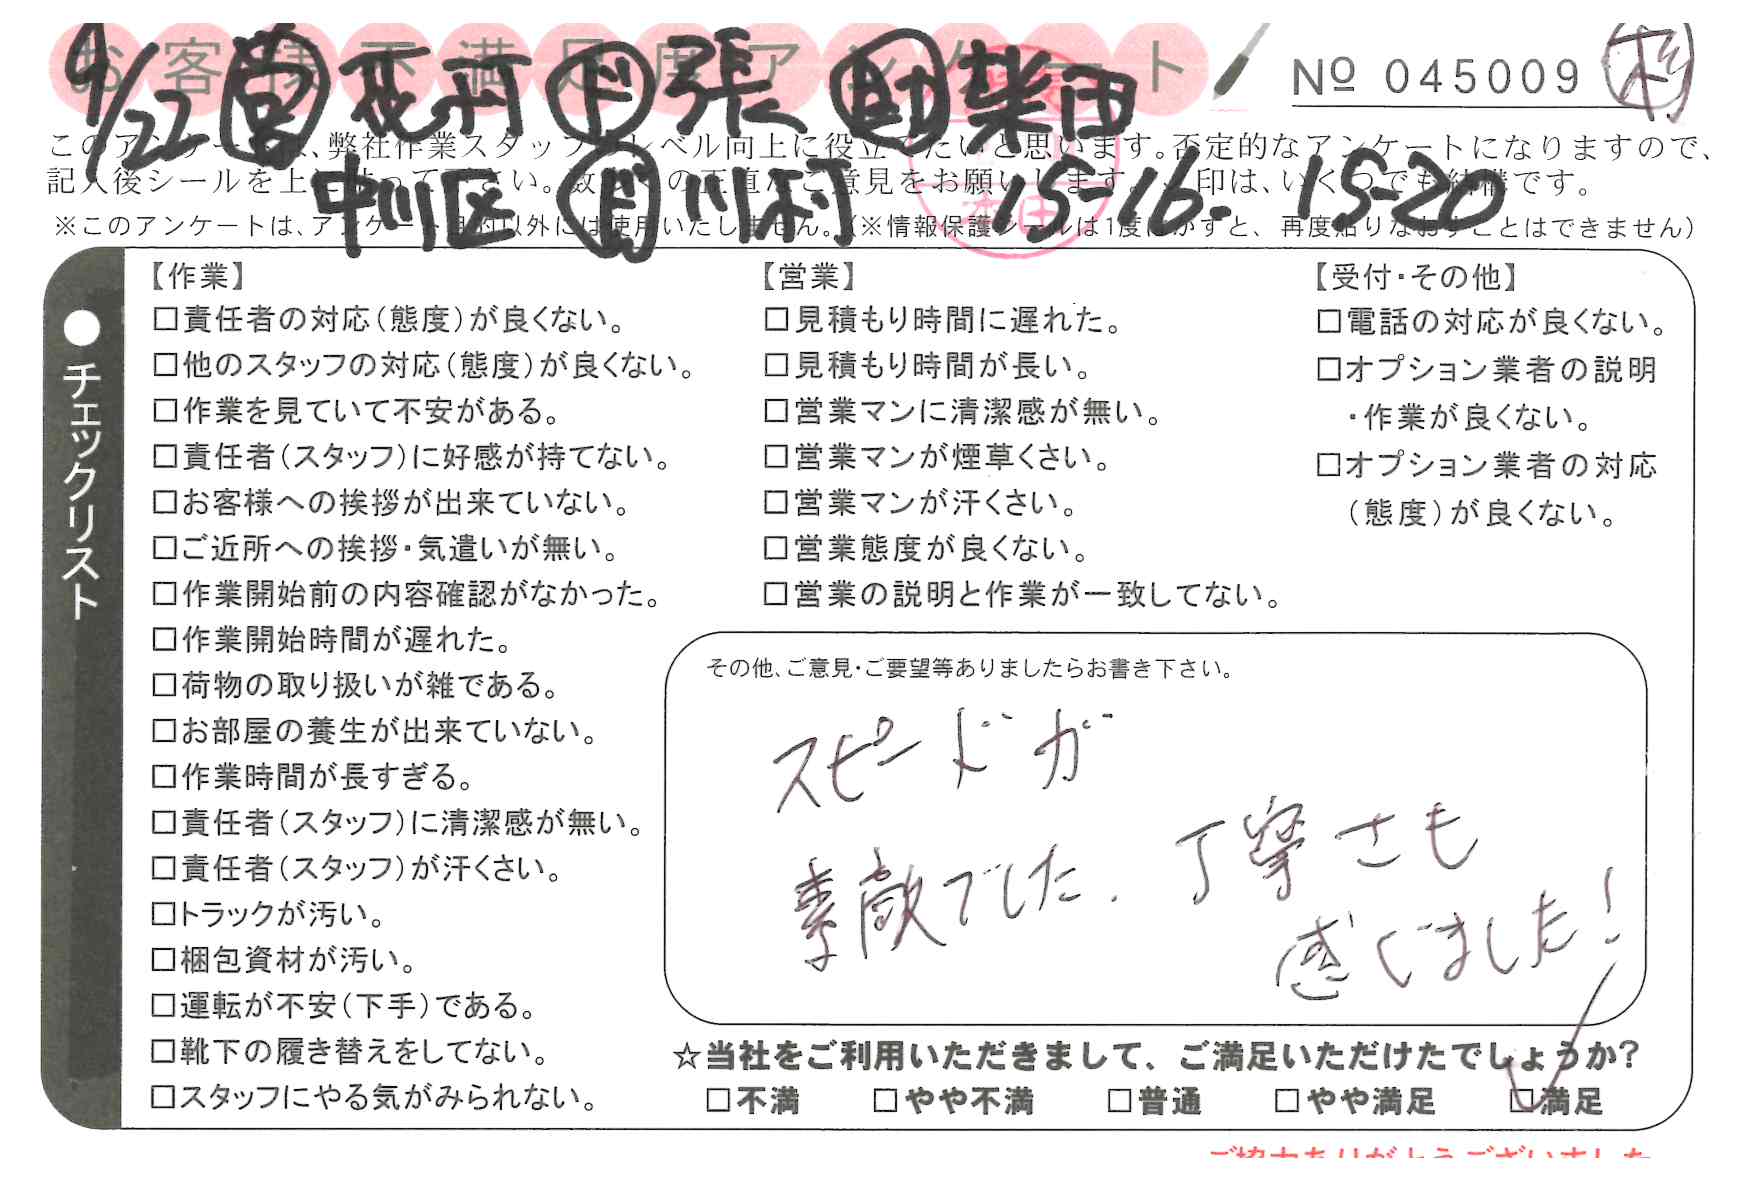 お客様不満足度アンケート
9/22 営 花村 ド 張 助 柴田
No 045009 杉
このアンケートは、弊社作業スタッフのレベル向上に役立てたいと思います。否定的なアンケートになりますので、
記入後シールを上に貼って下さい。数多くの正直なご意見をお願いします。✓印は、いくつでも結構です。
中川区 川村 15-16. 15-20
※このアンケートは、アンケート目的以外には使用いたしません。(※情報保護シールは1度はがすと、再度貼りなおすことはできません)
●チェックリスト
【作業】
□責任者の対応(態度)が良くない。
□他のスタッフの対応(態度)が良くない。
□作業を見ていて不安がある。
□責任者(スタッフ)に好感が持てない。
□お客様への挨拶が出来ていない。
□ご近所への挨拶・気遣いが無い。
□作業開始前の内容確認がなかった。
□作業開始時間が遅れた。
□荷物の取り扱いが雑である。
□お部屋の養生が出来ていない。
□作業時間が長すぎる。
□責任者(スタッフ)に清潔感が無い。
□責任者(スタッフ)が汗くさい。
□トラックが汚い。
□梱包資材が汚い。
□運転が不安(下手)である。
□靴下の履き替えをしてない。
□スタッフにやる気がみられない。
【営業】
□見積もり時間に遅れた。
□見積もり時間が長い。
□営業マンに清潔感が無い。
□営業マンが煙草くさい。
□営業マンが汗くさい。
□営業態度が良くない。
□営業の説明と作業が一致してない。
【受付・その他】
□電話の対応が良くない。
□オプション業者の説明
・作業が良くない。
□オプション業者の対応
(態度)が良くない。
その他、ご意見・ご要望等ありましたらお書き下さい。
スピードが
素敵でした。丁寧さも
感じました!
☆当社をご利用いただきまして、ご満足いただけたでしょうか?
□不満 □やや不満 □普通 □やや満足 ☑満足
ご協力ありがとうございました